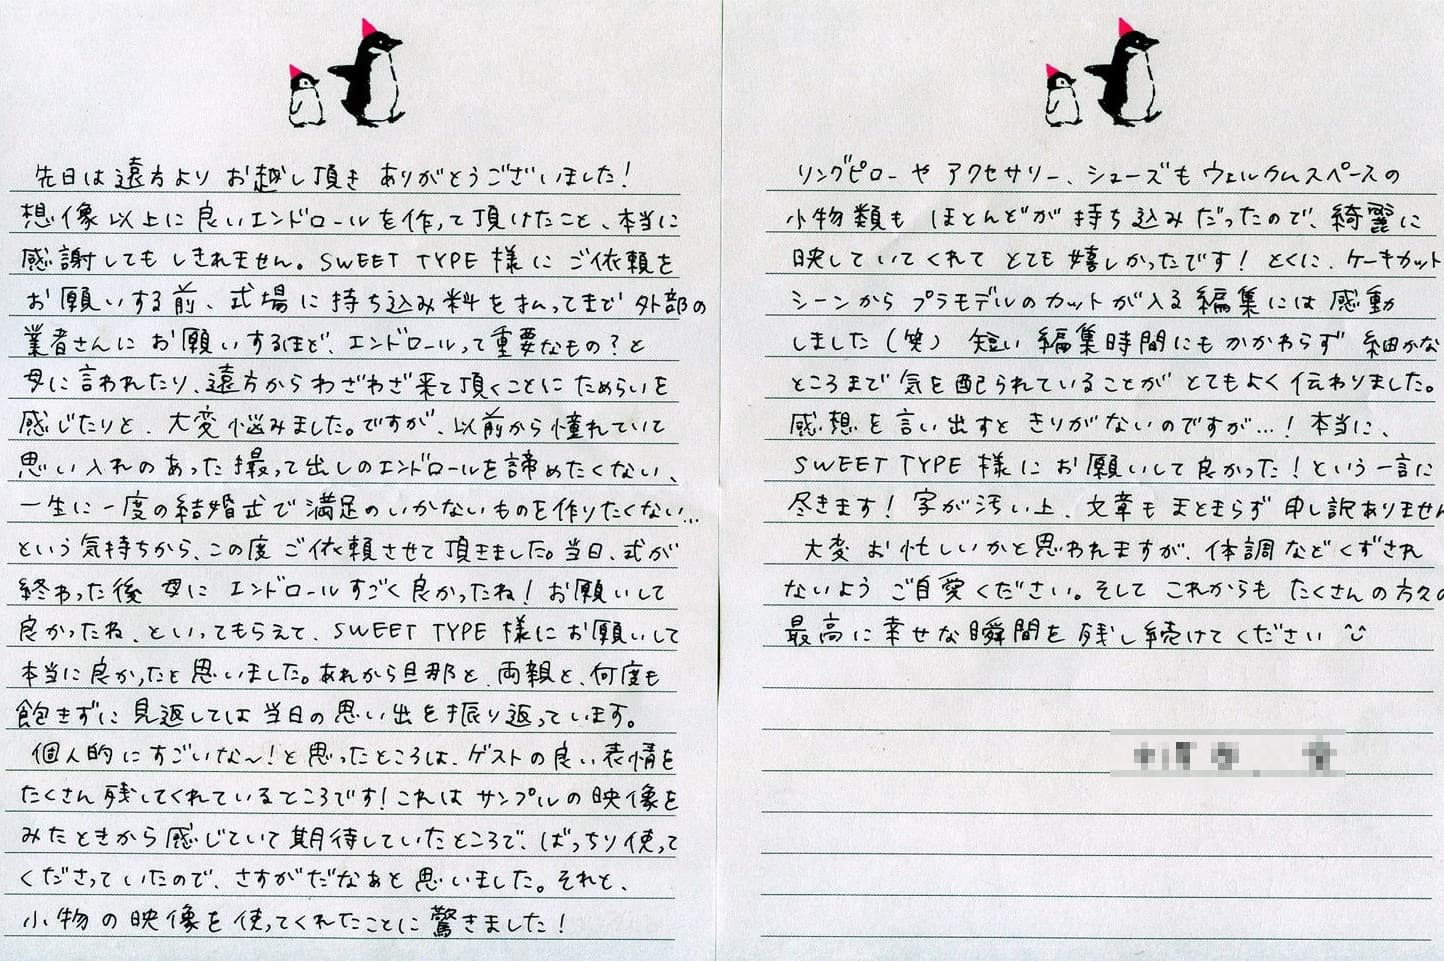 先日は遠方より お越し頂き ありがとうございました!
想像以上に良いエンドロールを作って頂けたこと、本当に
感謝してもしきれません。SWEET TYPE 様に ご依頼を
お願いする前、式場に持ち込み料を払ってまで外部の
業者さんに お願いするほど、エンドロールって重要なもの?と
母に言われたり、遠方からわざわざ来て頂くことにためらいを
感じたりと、大変悩みました。ですが、以前から憧れていて
思い入れのあった撮って出しのエンドロールを諦めたくない、
一生に一度の結婚式で満足のいかないものを作りたくない…
という気持ちから、この度ご依頼させて頂きました。当日、式が
終わった後 母に エンドロールすごく良かったね!お願いして
良かったね、といってもらえて、SWEET TYPE 様にお願いして
本当に良かったと思いました。あれから旦那と、両親と、何度も
飽きずに見返しては当日の思い出を振り返っています。
個人的にすごいな〜!と思ったところは、ゲストの良い表情を
たくさん残してくれているところです!これはサンプルの映像を
みたときから感じていて期待していたところで、ばっちり使って
くださっていたので、さすがだなぁと思いました。それと、
小物の映像を使ってくれたことに驚きました!
リングピローやアクセサリー、シューズもウェルカムスペースの
小物類も ほとんどが持ち込みだったので、綺麗に
映していてくれて とても嬉しかったです!とくに、ケーキカット
シーンから プラモデルのカットが入る編集には感動
しました(笑) 短い編集時間にもかかわらず 細かな
ところまで気を配られていることが とてもよく伝わりました。
感想を言い出すときりがないのですが…!本当に、
SWEET TYPE 様にお願いして良かった!という一言に
尽きます!字が汚い上、文章もまとまらず申し訳ありません
大変お忙しいかと思われますが、体調などくずされ
ないよう ご自愛ください。そして これからも たくさんの方々の
最高に幸せな瞬間を残し続けてください